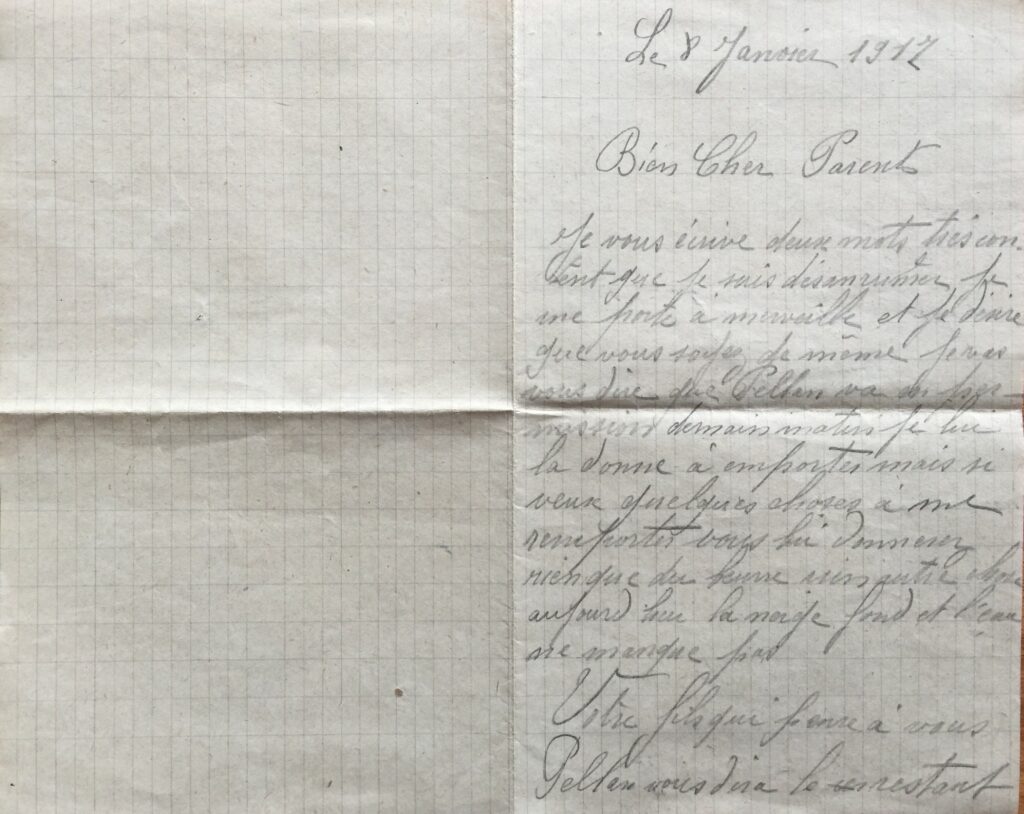 Le 8 Janvier 1917
Bien Cher Parents
Je vous écrive deux mots très con-
tent que je suis désanrumer je
me porte à merveille et je désire
que vous soyez de même je vas
vous dire que Pellan va en per-
mission demain matin je lui
la donne à emporter mais si
veux quelques choses à me
remporter vous lui donnerer
rien que du beurre rien autre chose
aujourd hui la neige fond et l'eau
ne manque pas
Votre fils qui pense à vous
Pellan vous dira le restant